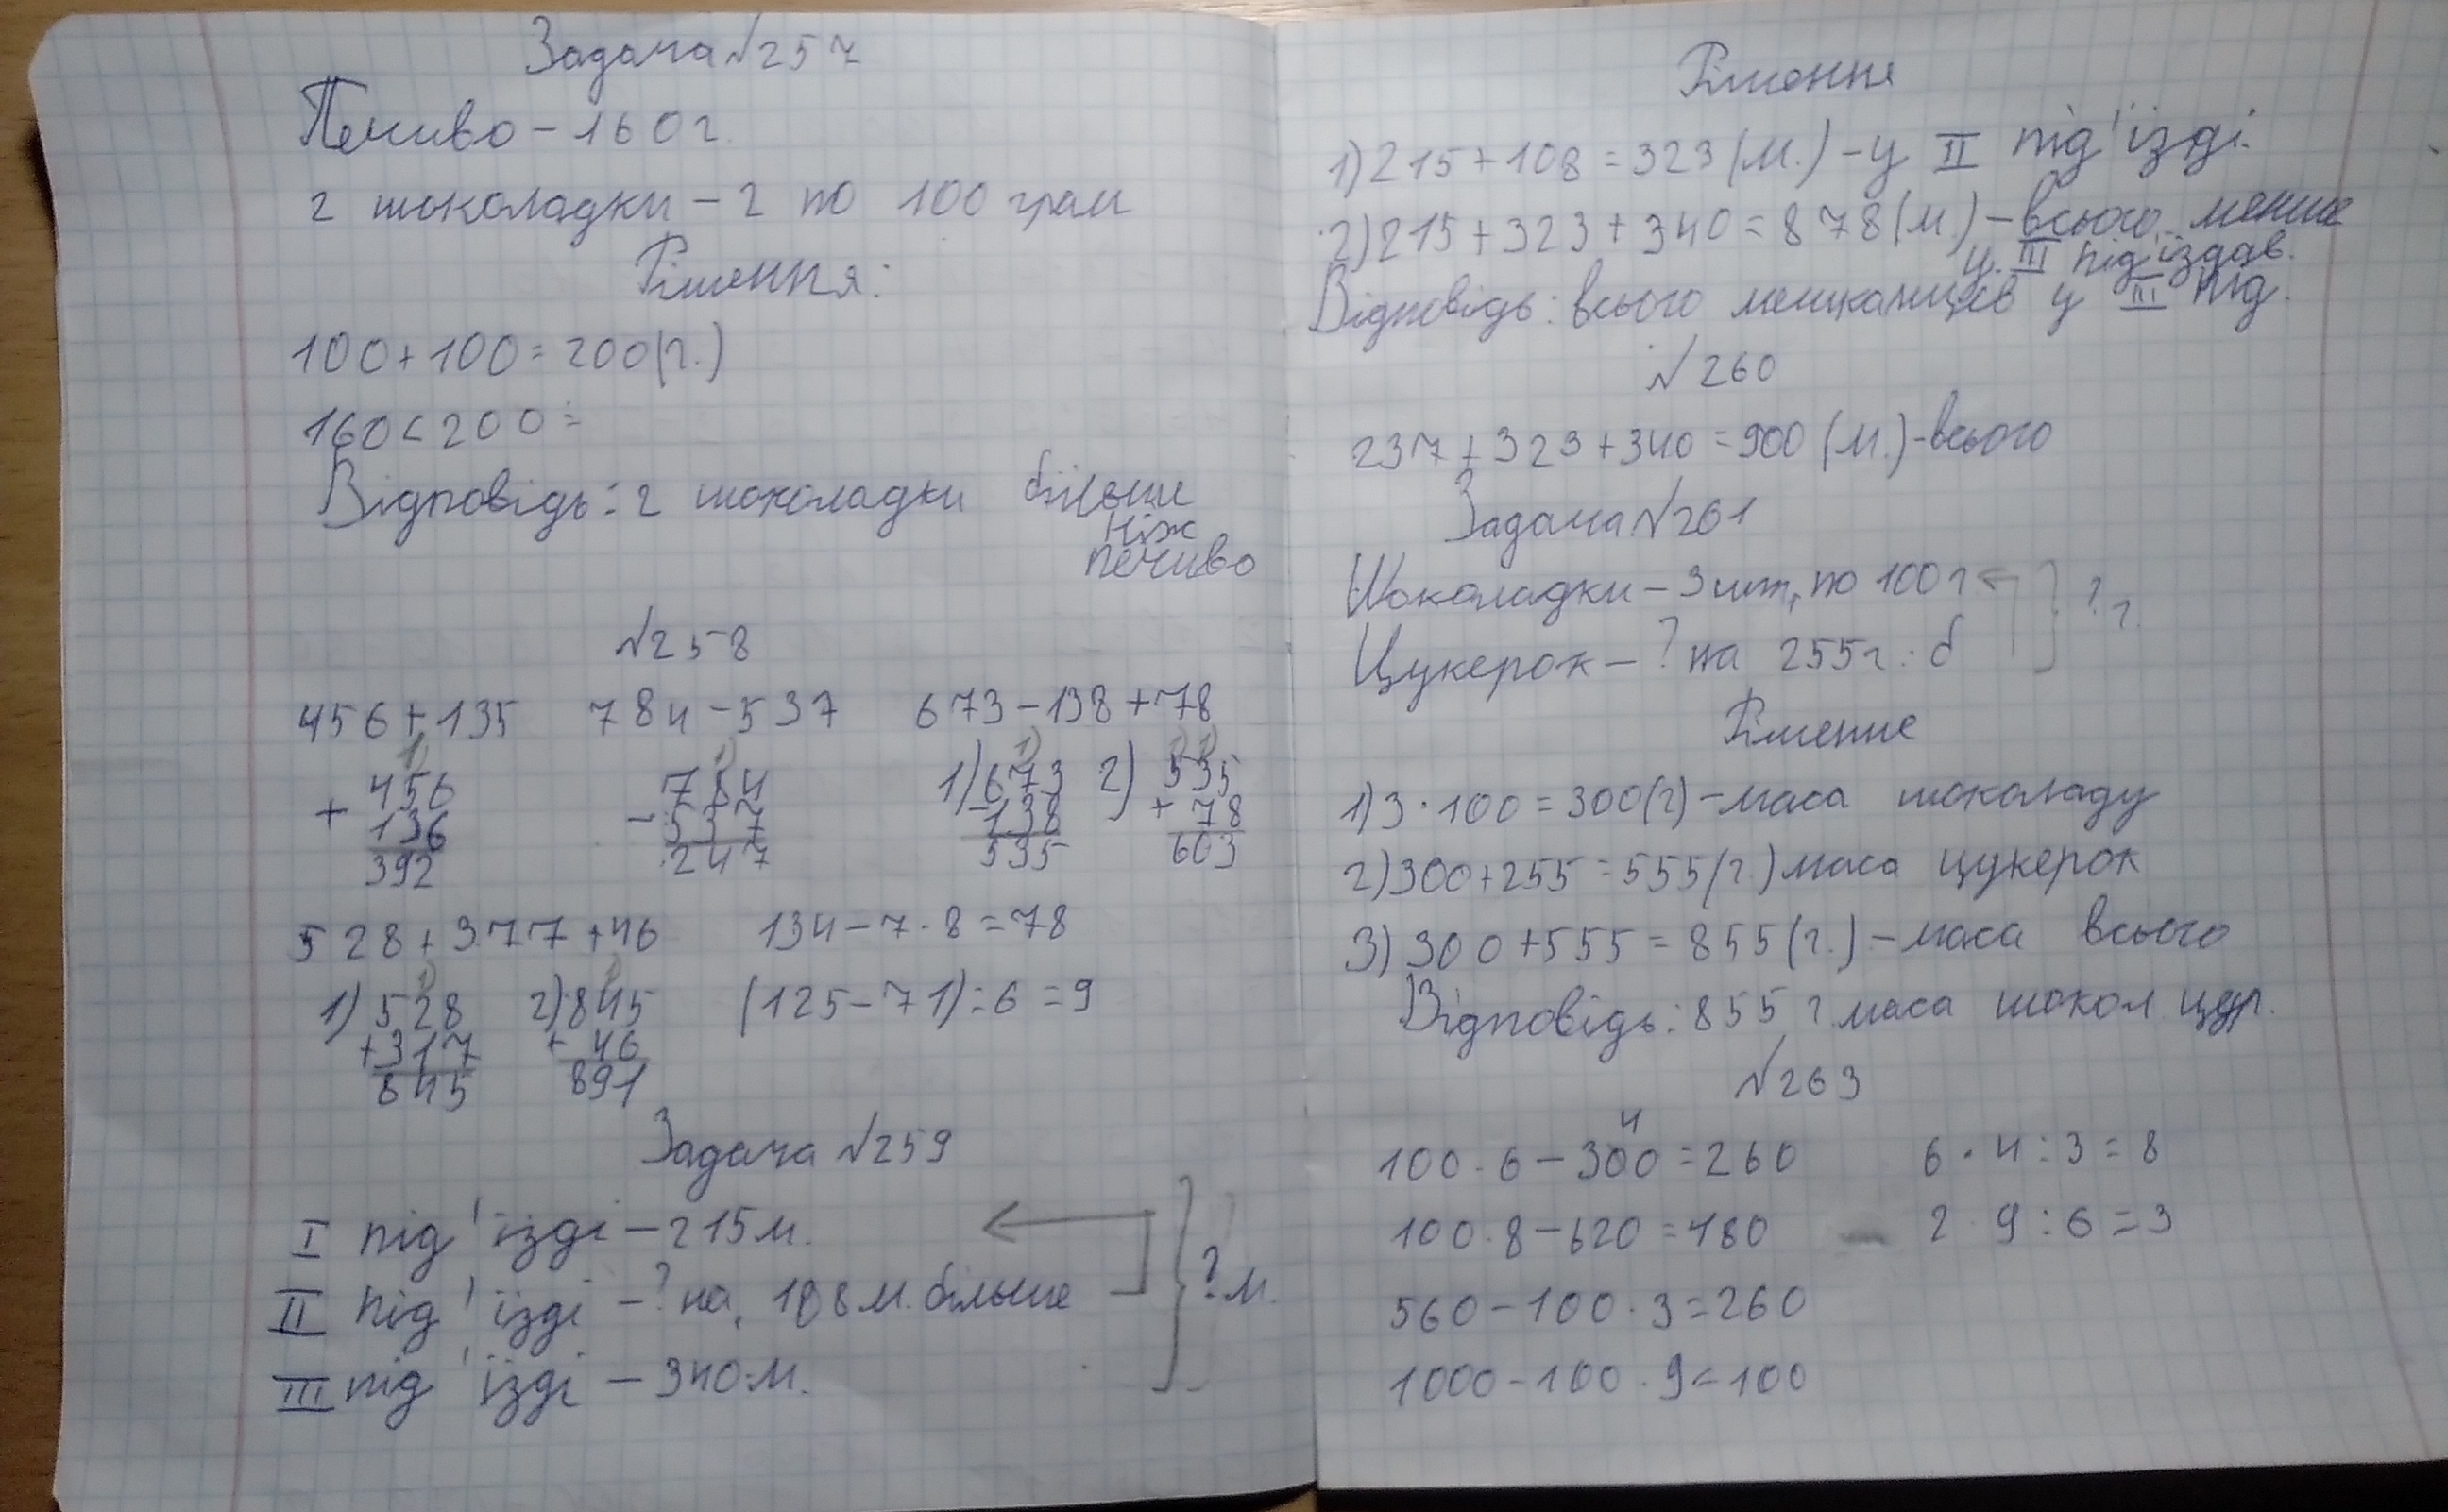 Задача №257
Печиво – 160 г.
2 шоколадки – 2 по 100 грам
Рішення:
100 + 100 = 200 (г.)
160 < 200 =
Відповідь: 2 шоколадки більши
ніж
печиво
№258
456 + 135 784 - 537 673 - 138 + 78
1) 1) 1) 1) 1)
+ 456 - 784 1) 673 2) 535
136 537 - 138 + 78
392 247 535 603
528 + 377 + 46 134 - 7 · 8 = 78
1) 1)
1) 528 2) 845 (125 - 71) : 6 = 9
+ 317 + 46
845 891
Задача №259
I під'їзді – 215 м.
II під'їзді – ? на, 108 м. більше ? м.
III під'їзді – 340 м.
Рішення
1) 215 + 108 = 323 (м.) – у II під'їзді.
2) 215 + 323 + 340 = 878 (м.) – всього менше
у III під'їздав.
Відповідь: всього мешканців у III під.
№260
237 + 323 + 340 = 900 (м.) - всього
Задача №261
Шоколадки – 3 шт, по 100 г ? г.
Цукерок – ? на 255 г. б
Рішение
1) 3 · 100 = 300 (г) – маса шоколаду
2) 300 + 255 = 555 (г.) маса цукерок
3) 300 + 555 = 855 (г.) – маса всього
Відповідь: 855 г. маса шокол
№263
4
100 · 6 – 300 = 260 6 · 4 : 3 = 8
100 · 8 – 620 = 180 2 · 9 : 6 = 3
560 – 100 · 3 = 260
1000 - 100 · 9 = 100